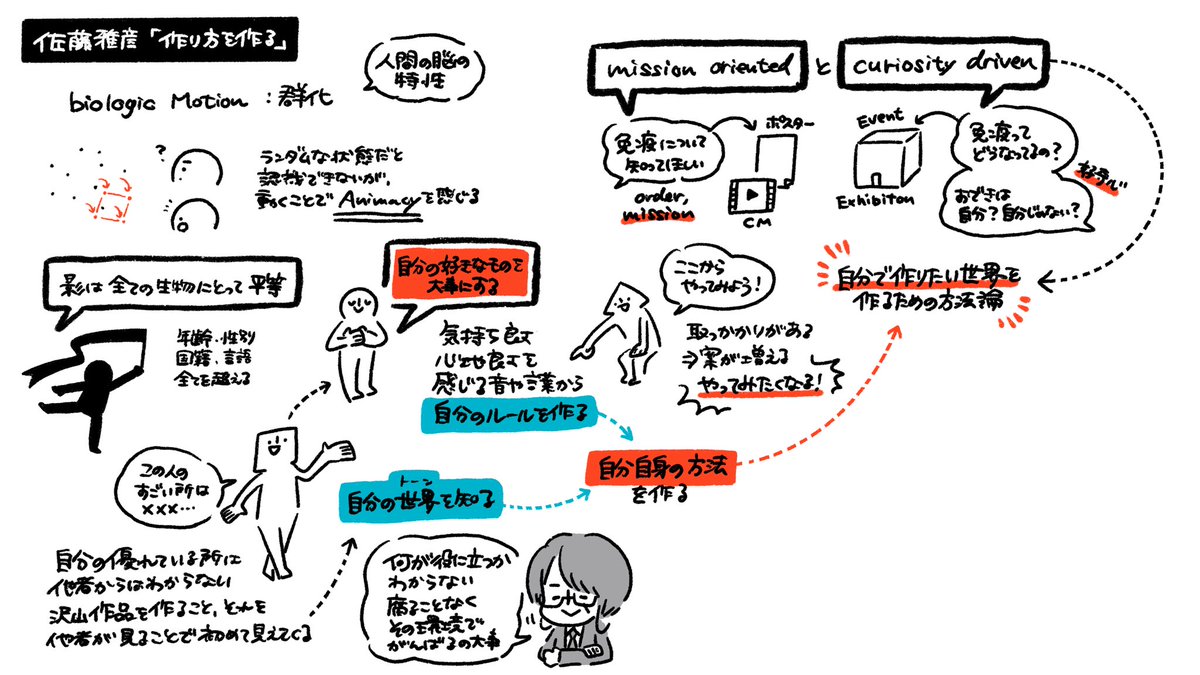 佐藤雅彦「作り方を作る」
biologic Motion：群化
人間の脳の
特性
?
ランダムな状態だと
認識できないが、
動くことで Animacyを感じる
影は全ての生物にとって平等
年齢・性別
国籍・言語
全てを超える
自分の好きなものを
大事にする
気持ち良さ
心地良さを
感じる音や言葉から
自分のルールを作る
この人の
すごい所は
×××…
自分の優れている所は
他者からはわからない
沢山作品を作ること、それを
他者が見ることで初めて見えてくる
トーン
自分の世界を知る
何が役に立つか
わからない
腐ることなく
その環境で
がんばるの大事
自分自身の方法
を作る
ここから
やってみよう!
取っかかりがある
⇒案が増える
やってみたくなる!
mission orientedとcuriosity driven
免疫について
知ってほしい
order,
mission
ポスター
CM
Event
Exhibiton
免疫って
どうなってるの?
おできは
自分?自分じゃない?
好奇心
自分で作りたい世界を
作るための方法論